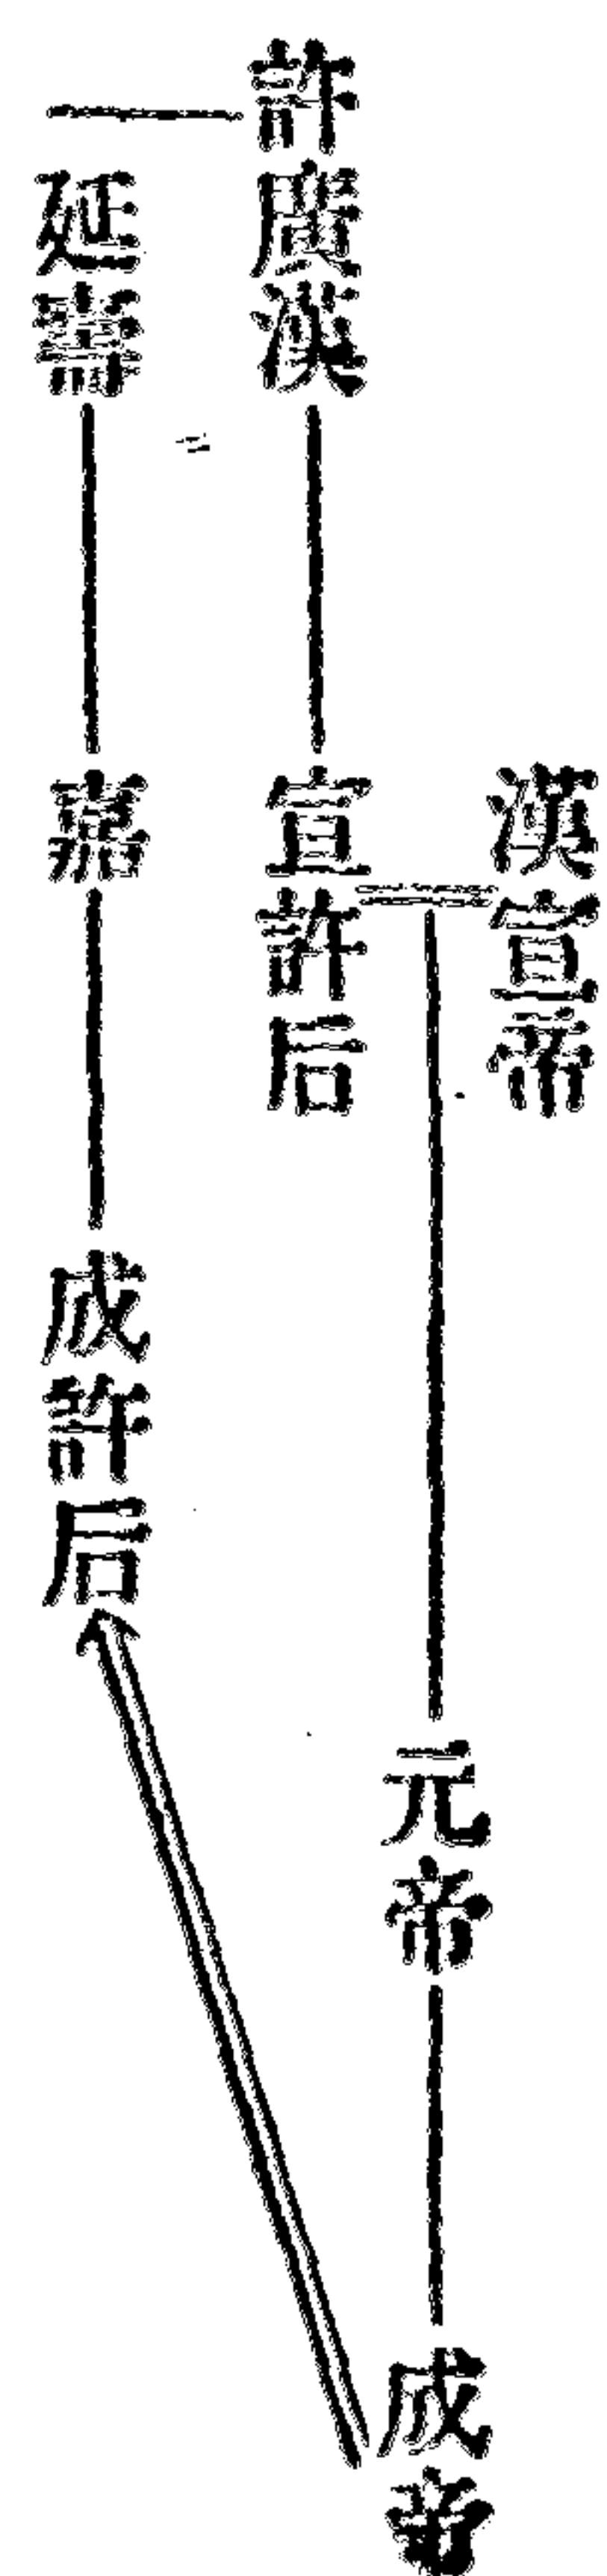 漢宣帝
元帝
成帝
許廣漢
宣許后
延壽
嘉
成許后